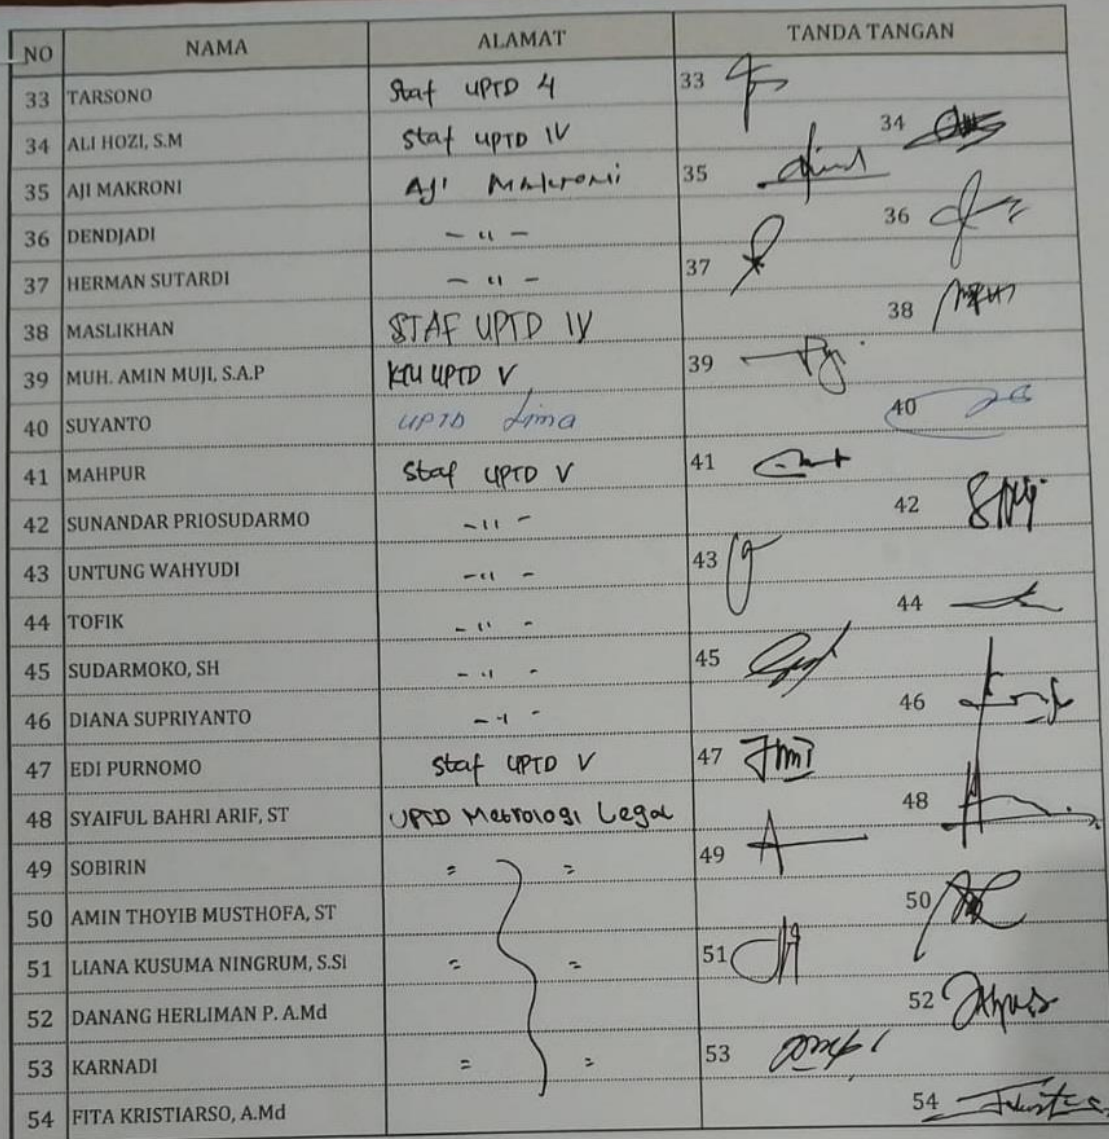 NO NAMA ALAMAT TANDA TANGAN
33 TARSONO Staf UPTD 4 33
34 ALI HOZI, S.M Staf UPTD IV 34
35 AJI MAKRONI Aji Makroni 35
36 DENDJADI - " - 36
37 HERMAN SUTARDI - " - 37
38 MASLIKHAN STAF UPTD IV 38
39 MUH. AMIN MUJI, S.A.P KTU UPTD V 39
40 SUYANTO UPTD Lima 40
41 MAHPUR Staf UPTD V 41
42 SUNANDAR PRIOSUDARMO - " - 42
43 UNTUNG WAHYUDI - " - 43
44 TOFIK - " - 44
45 SUDARMOKO, SH - " - 45
46 DIANA SUPRIYANTO - " - 46
47 EDI PURNOMO Staf UPTD V 47
48 SYAIFUL BAHRI ARIF, ST UPTD Metrologi Legal 48
49 SOBIRIN = = 49
50 AMIN THOYIB MUSTHOFA, ST 50
51 LIANA KUSUMA NINGRUM, S.Si = = 51
52 DANANG HERLIMAN P. A.Md 52
53 KARNADI = = 53
54 FITA KRISTIARSO, A.Md 54